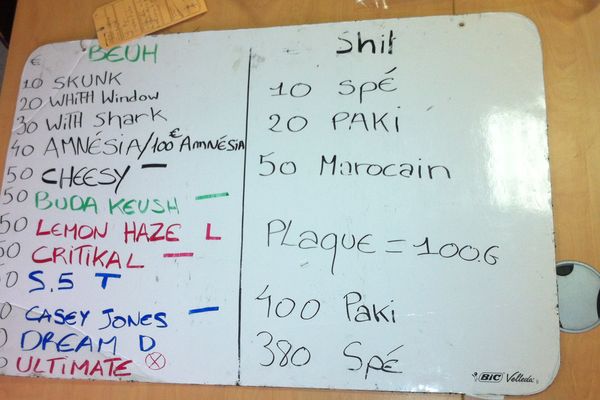 BEUH
€
10 SKUNK
20 WHITH Window
30 WITH Shark
40 AMNÉSIA/100€ AMNÉSIA
50 CHEESY —
50 BUDA KEUSH —
50 LEMON HAZE L
50 CRITIKAL —
0 S.5 T
0 CASEY JONES —
0 DREAM D
0 ULTIMATE ⓧ
Shit
10 Spé
20 PAKI
50 Marocain
PLaque = 100.G
400 Paki
380 Spé
BIC Velleda